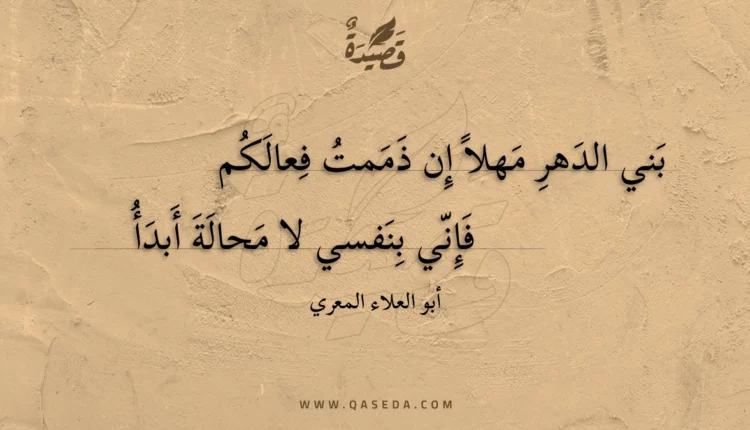 قَصِيدَةٌ
بَني الدَهرِ مَهلاً إِن ذَمَمتُ فِعالَكُم
فَإِنّي بِنَفسي لا مَحالَةَ أَبدَأُ
أبو العلاء المعري
WWW.QASEDA.COM